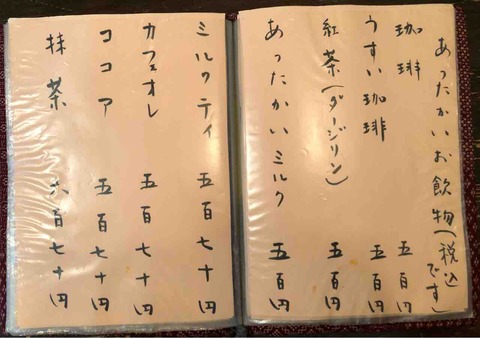 あったかいお飲物(税込です)
珈琲 五百円
うすい珈琲 五百円
紅茶(ダージリン) 五百円
あったかいミルク 五百円
ミルクティ 五百七十円
カフェオレ 五百七十円
ココア 五百七十円
抹茶 六百七十円